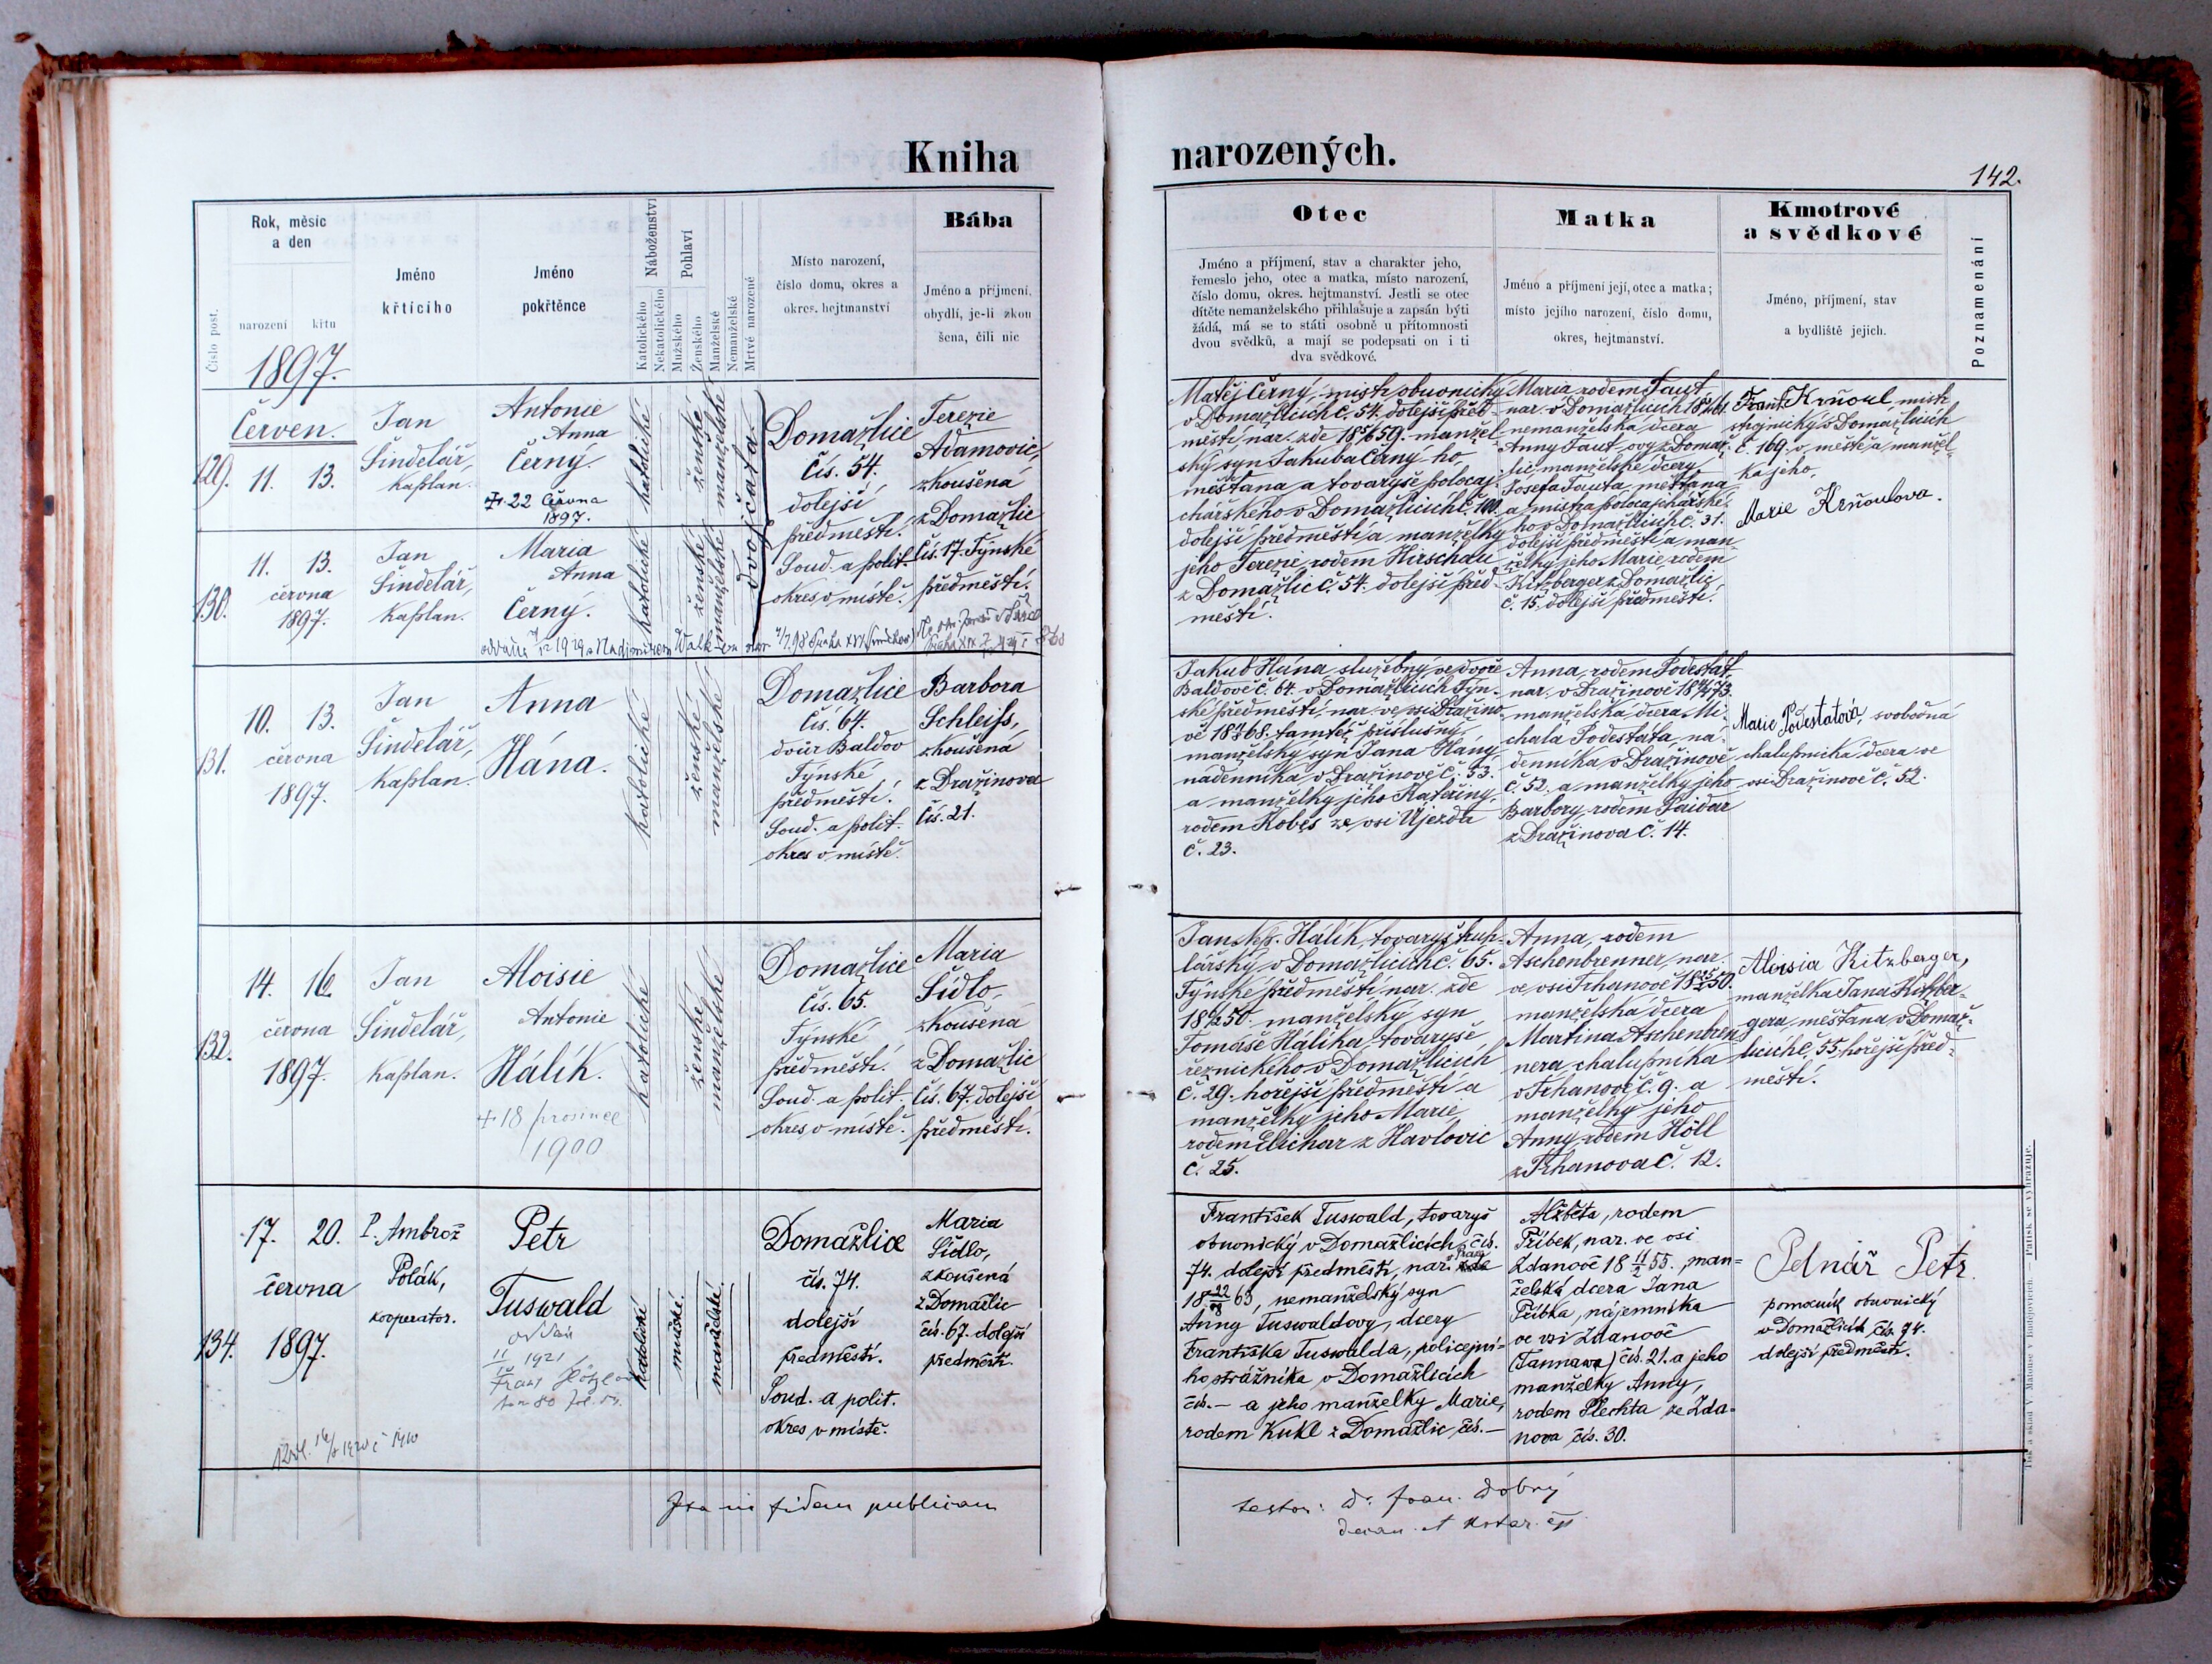 Kniha
narozených.
142.
Číslo post.
Rok, měsíc
a den
narození
křtu
1897.
Jméno
křtícího
Jméno
pokřtěnce
Náboženství
Katolického
Nekatolického
Pohlaví
Mužského
Ženského
Manželské
Nemanželské
Mrtvé narozené
Místo narození,
číslo domu, okres a
okres. hejtmanství
Bába
Jméno a příjmení,
obydlí, je-li zkou
šena, čili nic
Otec
Jméno a příjmení, stav a charakter jeho,
řemeslo jeho, otec a matka, místo narození,
číslo domu, okres. hejtmanství. Jestli se otec
dítěte nemanželského přihlašuje a zapsán býti
žádá, má se to státi osobně u přítomnosti
dvou svědků, a mají se podepsati on i ti
dva svědkové.
Matka
Jméno a příjmení její, otec a matka;
místo jejího narození, číslo domu,
okres, hejtmanství.
Kmotrové
a svědkové
Jméno, příjmení, stav
a bydliště jejich.
Poznamenání
Červen.
129.
11. 13.
Jan
Šindelář,
kaplan.
Antonie
Anna
Černý.
22 června
1897.
katolické
ženské
manželské
dvojčata
Domažlice
čís. 54.
dolejší
předměstí.
Soud. a polit.
okres v místě.
Terezie
Adamovic,
zkoušená
z Domažlic
čís. 17. Týnské
předměstí.
Matěj Černý, mistr obuvnický
v Domažlicích č. 54. dolejší před
městí nar. zde 18 59. manžel
ský syn Jakuba Černý ho
měšťana a tovaryše polocaj
chařského v Domažlicích č. 100.
dolejší předměstí a manželky
jeho Terezie rodem Hirschau
z Domažlic č. 54. dolejší před
městí.
Maria rodem Taut
nar. v Domažlicích
nemanželská dcera
Anny Taut ovy z Domaž-
lic manželské dcery
Josefa Tauta měšťana
a mistra polocajchařské
ho v Domažlicích č. 31.
dolejší předměstí a man
želky jeho Marie rodem
Kitzberger z Domažlic
č. 15. dolejší předměstí.
Frant. Krňoul, mistr
strojnický v Domažlicích
č. 169. v městě a manžel-
ka jeho,
Marie Krňoulova.
130.
11. 13.
června
1897.
Jan
Šindelář,
kaplan.
Maria
Anna
Černý.
katolické
ženské
manželské
131.
10. 13.
června
1897.
Jan
Šindelář,
kaplan.
Anna
Hána.
katolické
ženské
manželské
Domažlice
čís. 64.
dvůr Baldov
Týnské
předměstí.
Soud. a polit.
okres v místě.
Barbora
Schleiss,
zkoušená
z Dražinova
čís. 21.
Jakub Hána, služebný ve dvoře
Baldově č. 64. v Domažlicích Týn-
ské předměstí, nar. ve vsi Dražino-
vě 18 68. tamtéž příslušný,
manželský syn Jana Hány
nadenníka v Dražinově č. 53.
a manželky jeho Kateřiny,
rodem Kobes ze vsi Újezda
č. 23.
Anna, rodem Podestát,
nar. v Dražinově 18 73.
manželská dcera Mi-
chala Podestáta, na-
denníka v Dražinově
č. 52. a manželky jeho
Barbory rodem Paidar
z Dražinova č. 14.
Marie Podestatová, svobodná
chalupnická dcera ve
vsi Dražinově č. 52.
132.
14. 16.
června
1897.
Jan
Šindelář,
kaplan.
Aloisie
Antonie
Hálík.
18 prosince
1900
katolické
ženské
manželské
Domažlice
čís. 65.
Týnské
předměstí.
Soud. a polit.
okres v místě.
Maria
Šídlo,
zkoušená
z Domažlic
čís. 67. dolejší
předměstí.
Jan Nep. Hálík, tovaryš truh-
lářský v Domažlicích č. 65.
Týnské předměstí nar. zde
18 50. manželský syn
Tomáše Hálíka, tovaryše
řeznického v Domažlicích
č. 29. hořejší předměstí a
manželky jeho Marie,
rodem Ellichar z Havlovic
č. 25.
Anna, rodem
Aschenbrenner, nar.
ve vsi Trhanově 18 50.
manželská dcera
Martina Aschenbren
nera, chalupníka
v Trhanově č. 9. a
manželky jeho
Anny rodem Höll
z Trhanova č. 12.
Aloisia Kitzberger,
manželka Jana Kitzber-
gera, měšťana v Domaž-
licích č. 55. hořejší před-
městí.
134.
17. 20.
června
1897.
P. Ambrož
Polák,
kooperator.
Petr
Tuswald
1921
katolické
mužské
manželské.
Domažlice
čís. 74.
dolejší
předměstí.
Soud. a polit.
okres v místě.
Maria
Šídlo,
zkoušená
z Domažlic
čís. 67. dolejší
předměstí.
František Tuswald, tovaryš
obuvnický v Domažlicích, čís.
74. dolejší předměstí, nar. v Praze
18 63, nemanželský syn
Anny Tuswaldovy, dcery
Františka Tuswalda, policejní-
ho strážníka v Domažlicích
čís. — a jeho manželky Marie,
rodem Kukl z Domažlic, čís. —
Alžběta, rodem
Příbek, nar. ve vsi
Ždanově 18 11/2 55., man=
želská dcera Jana
Příbka, nájemníka
ve vsi Ždanově
(Tannawa) čís. 21. a jeho
manželky Anny,
rodem Plechta ze Žda-
nova čís. 30.
Pelnář Petr
pomocník obuvnický
v Domažlicích čís. 74.
dolejší předměstí.
Ita in fidem publicam
testor: Dr. Joan. Dobrý